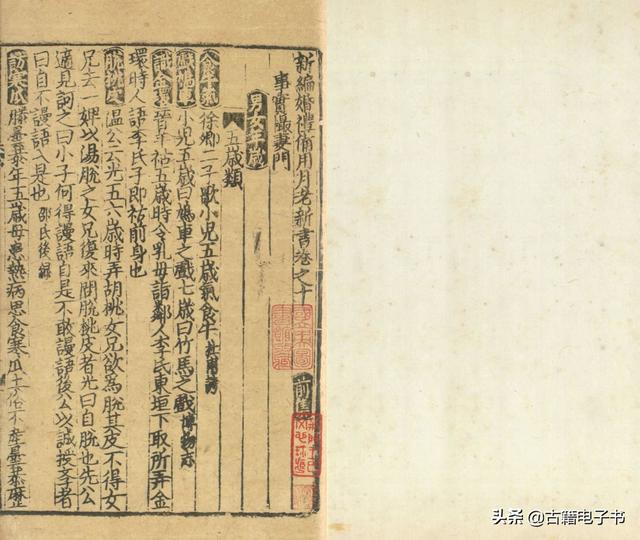 新編婚禮備用月老新書卷之十 前集
事實撮要門
男女年歲
五歲類
食牛氣 徐卿二子歌小兒五歲氣食牛 杜甫詩
戲鳩車 小兒五歲曰鳩車之戲七歲曰竹馬之戲 博物志
識金環 晉羊祜五歲時令乳母詣鄰人李氏東垣下取所弄金
環時人語李氏子即祜前身也
脫桃皮 溫公公光五六歲時弄胡桃女兄欲為脫其皮不得女
兄去一婢以湯脫之女兄復來問脫桃皮者光曰自脫也先公
適見訶之曰小子何得謾語自是不敢謾語後公以誠授子者
曰自不謾語入是也 邵氏後錄
訪寒瓜 滕曇恭年五歲母患熱病思食寒瓜土俗不產曇恭歷
頭条 @古籍电子书